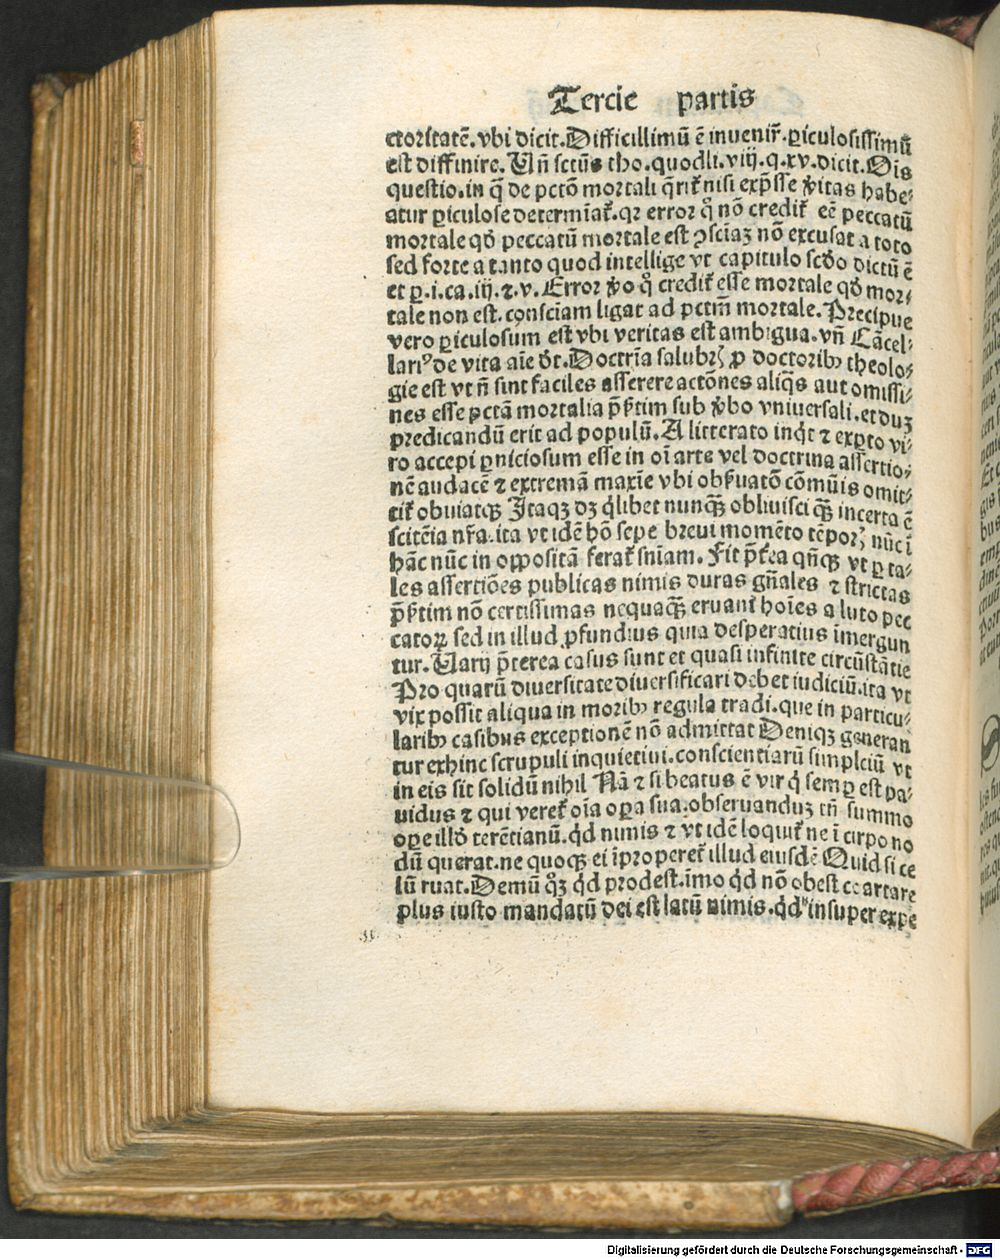 Tercie partis
ctoritatē. vbi dicit. Difficillimū ē inuenir̄. ꝑiculosissimū
est diffinire. Vn̄ sctūs tho. quodli. viij. q. xv. dicit. Oīs
questio. in q̄ de pctō mortali q̄rit᷑ nisi exp̄sse v̓itas habe⸗
atur ꝑiculose determīat᷑. qꝛ error qͦ nō credit᷑ eē peccatū
mortale qđ peccatū mortale est ꝯsciaꝫ nō excusat a toto
sed forte a tanto quod intellige vt capitulo scđo dictū ē
et ꝑ. i. ca. iij. ⁊. v. Error v̓o qͦ credit᷑ esse mortale qđ mor⸗
tale non est. consciam ligat ad pctm̄ mortale. Precipue
vero ꝑiculosum est vbi veritas est ambigua. vn̄ Cācel⸗
lariꝰ de vita aīe dt̄. Doctrīa salubrꝫ ꝓ doctoribꝫ theolo⸗
gie est vt n̄ sint faciles asserere actōnes aliq̄s aut omissi⸗
nes esse pctā mortalia p̄s̓tim sub v̓bo vniuersali. et duꝫ
predicandū erit ad populū. A litterato inqt̓ ⁊ exꝑto vi⸗
ro accepi ꝑniciosum esse in oī arte vel doctrina assertio⸗
nē audacē ⁊ extremā maxīe vbi obs̓uatō cōmūis omit⸗
tit᷑ obuiatqꝫ Itaqꝫ dꝫ qͥlibet nunqꝫ̄ obliuisci qꝫ̄ incerta ē
scitētia nr̄a. ita vt idē hō sepe breui momēto tēporꝫ nūc ī
hāc nūc in oppositā ferat᷑ sn̄iam. Fit p̄t̓ea qn̄qꝫ vt ꝑ ta⸗
les assertiōes publicas nimis duras gn̄ales ⁊ strictas
p̄s̓tim nō certissimas nequaqꝫ̄ eruant᷑ hoīes a luto pec
catoꝝ sed in illud ꝓfundius quia desperatius īmergun
tur. Varij p̄terea casus sunt et quasi infinite circūstātie
Pro quarū diuersitate diuersificari debet iudiciū. ita vt
vix possit aliqua in moribꝫ regula tradi. que in particu⸗
laribꝫ casibus exceptionē nō admittat Deniqꝫ generan
tur exhinc scrupuli inquietiui. conscientiarū simplciū vt
in eis sit solidū nihil Nā ⁊ si beatus ē vir qͥ semꝑ est pa⸗
uidus ⁊ qui veret᷑ oīa oꝑa sua. obseruanduꝫ tn̄ summo
oꝑe illđ terētianū. qͥd nimis ⁊ vt idē loquit᷑ ne ī cirpo no
dū querat. ne quoqꝫ ei īproperet᷑ illud eiusdē Quid si ce
lū ruat. Demū qͦꝫ qͥd prodest. īmo qͥd nō obest coartare
plus iusto mandatū dei est latū nimis. qͥd insuper expe
Digitalisierung gefördert durch die Deutsche Forschungsgemeinschaft - DFG